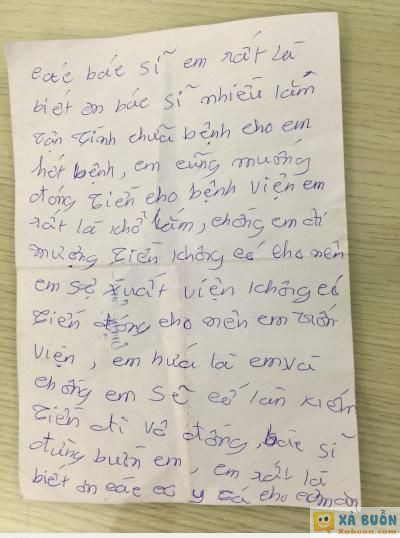 các bác sĩ em rất là
biết ơn bác sĩ nhiều lắm
tận tình chữa bệnh cho em
hết bệnh, em cũng muống
đóng tiền cho bệnh viện em
rất là khổ lắm, chồng em đi
mượng tiền không có cho nên
em sợ xuất viện không có
tiền đóng cho nên em trốn
viện, em hứa là em và
chồng em sẽ cố lần kiếm
tiền đi vô đóng, bác sĩ
đừng buồn em, em rất là
biết ơn các cô y tá cho
XẢ BUỒN
Xabuon.com